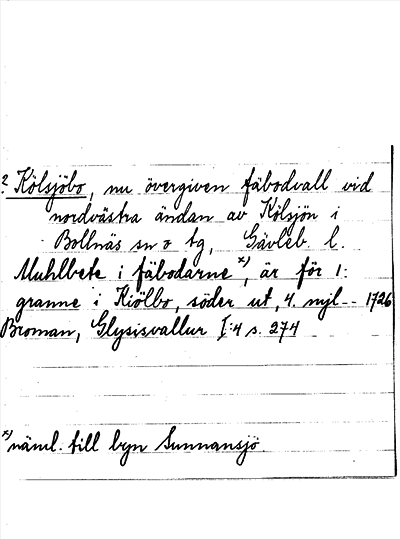 ? Kölsjöbo, nu övergiven fäbodvall vid
nordvästra ändan av Kölsjön i
Bollnäs sn o tg, Gävleb. l.
Muhlbete i fäbodarne x), är för 1:
granne i Kiölbo, söder ut, 4. mjl-- 1726
Broman, Glysisvallur I:4 s. 274
x) näml. till byn Sunnansjö